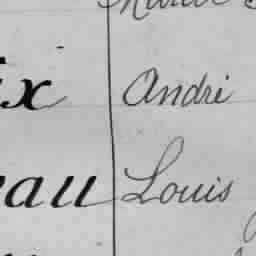 ix André
eau Louis